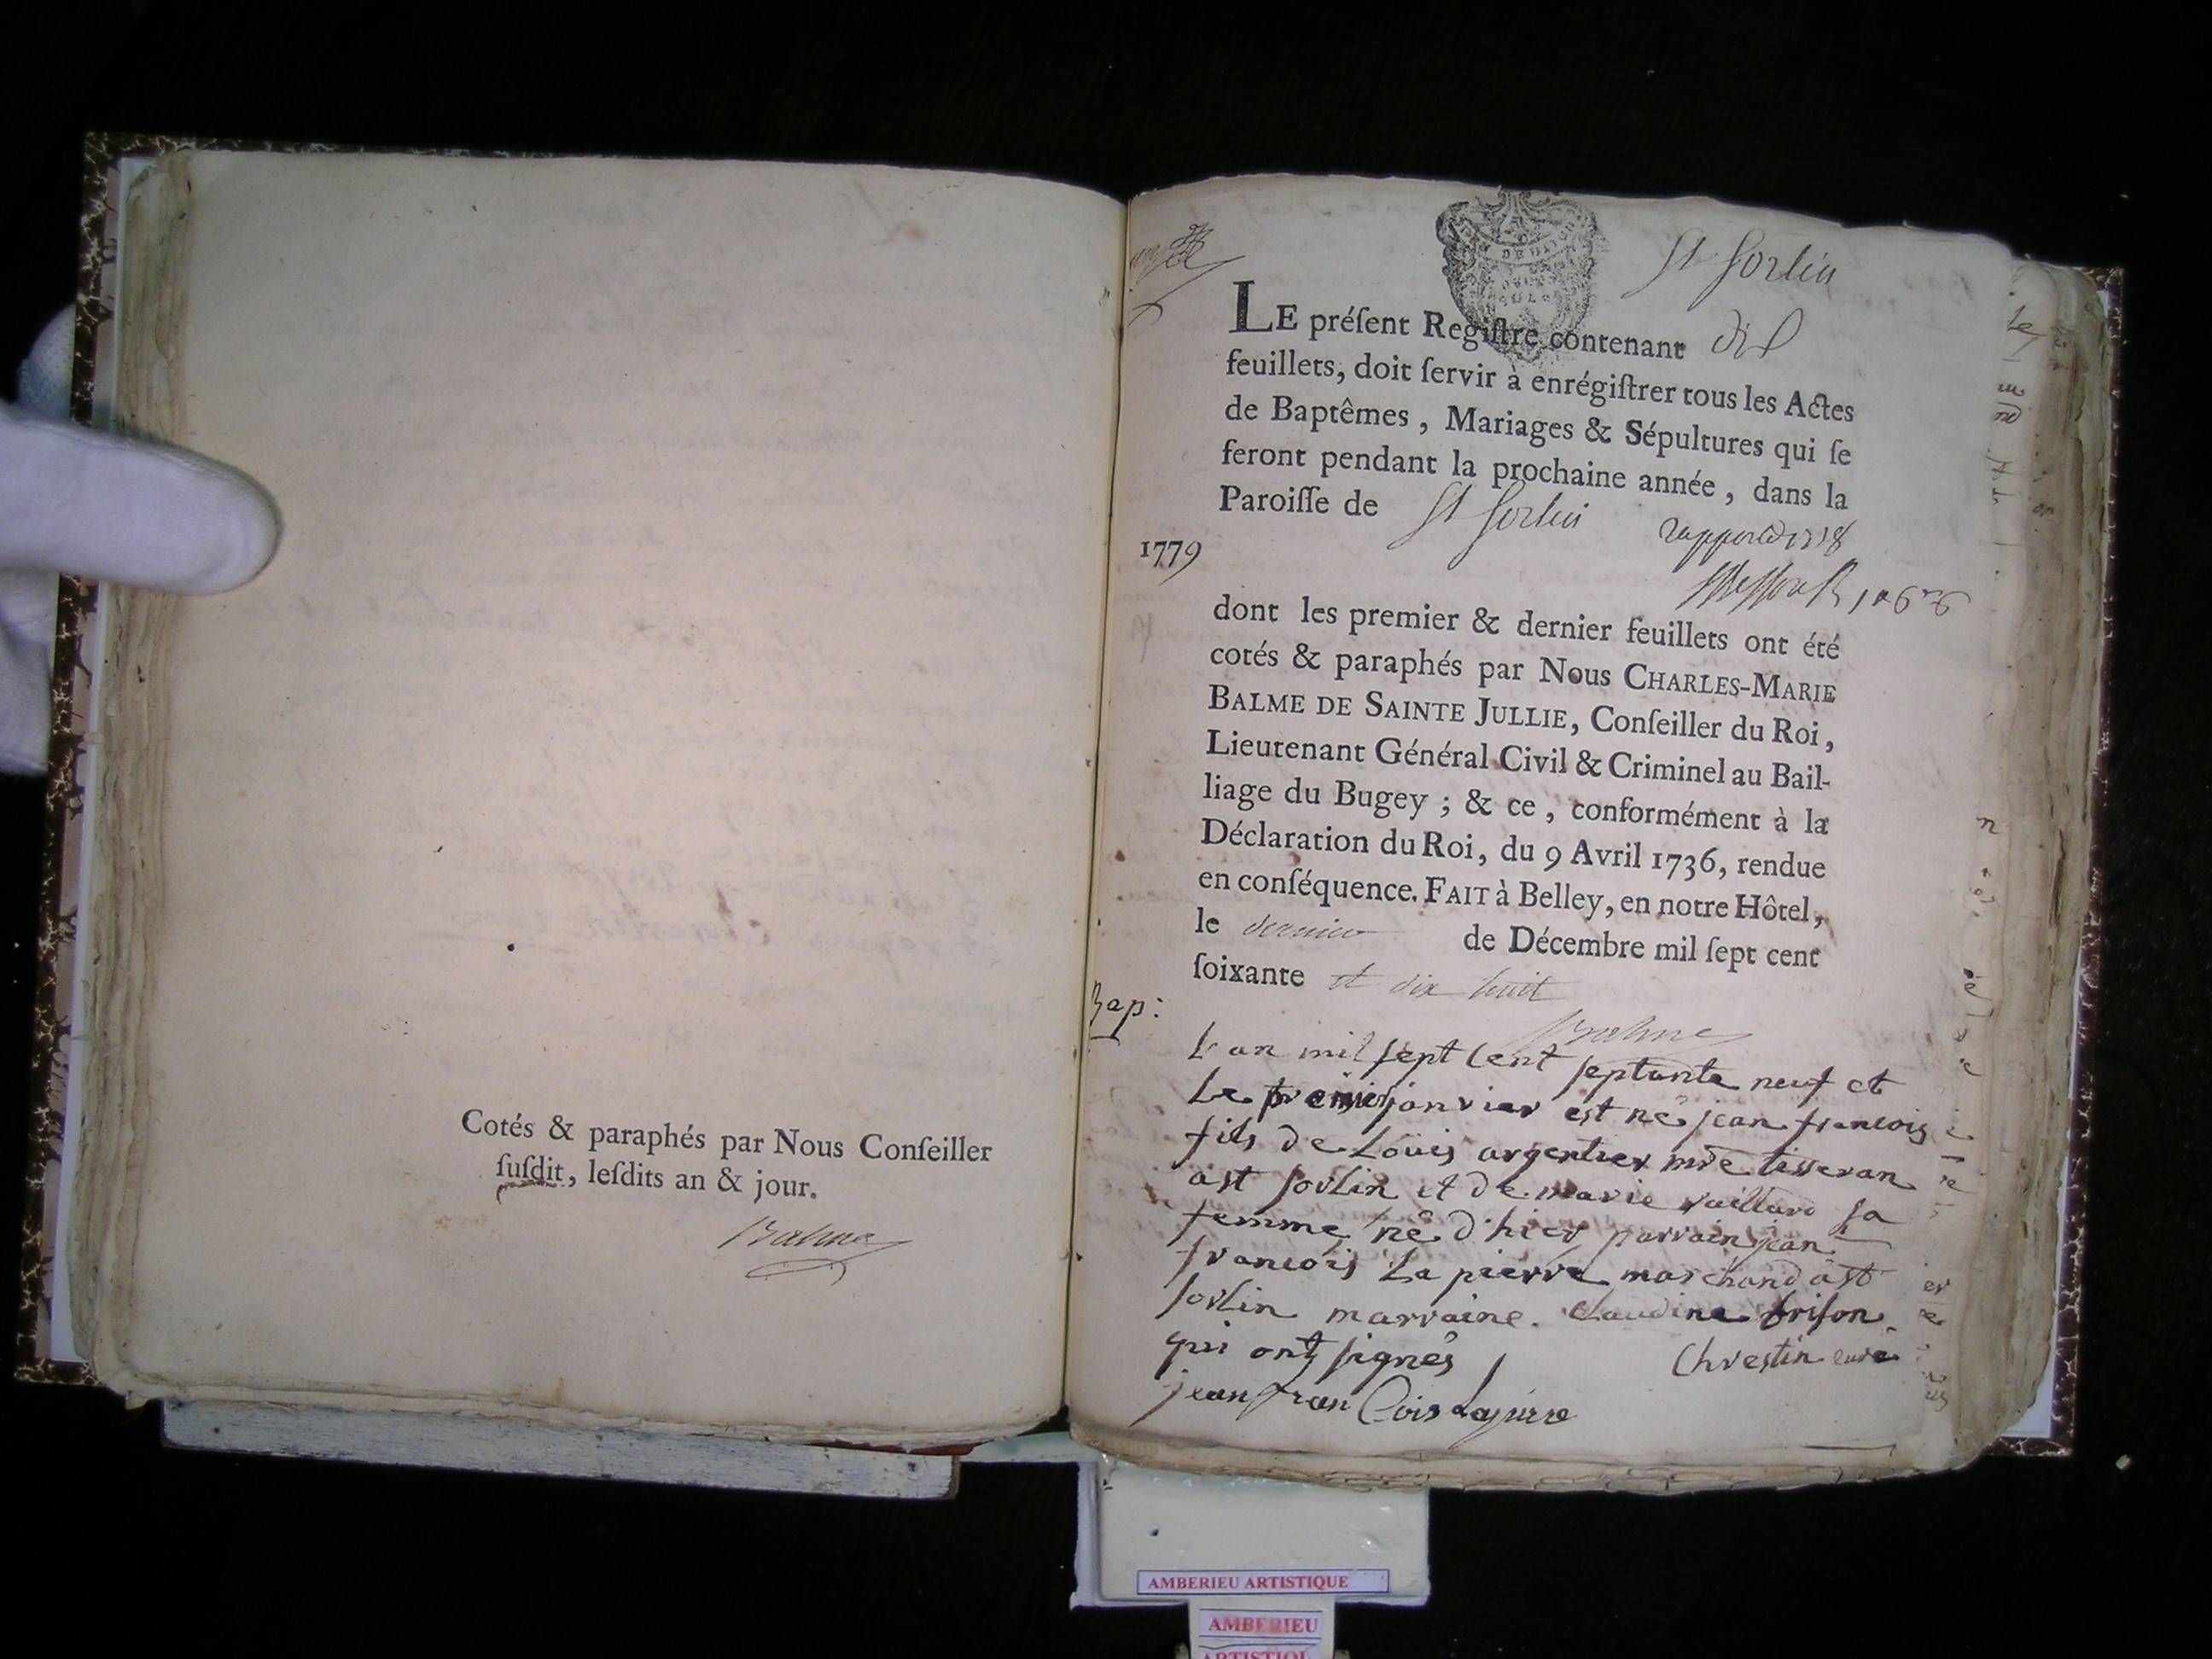 Cotés & paraphés par Nous Conſeiller
ſuſdit, leſdits an & jour.
Balme
St Sorlin
LE préſent Regiſtre contenant dix
feuillets, doit ſervir à enrégiſtrer tous les Actes
de Baptêmes, Mariages & Sépultures qui ſe
feront pendant la prochaine année, dans la
Paroiſſe de St Sorlin
1779
dont les premier & dernier feuillets ont été
cotés & paraphés par Nous CHARLES-MARIE
BALME DE SAINTE JULLIE, Conſeiller du Roi,
Lieutenant Général Civil & Criminel au Bail-
liage du Bugey ; & ce, conformément à la
Déclaration du Roi, du 9 Avril 1736, rendue
en conſéquence. FAIT à Belley, en notre Hôtel,
le dernier de Décembre mil ſept cent
ſoixante et dix huit
Balme
Bap:
L'an mil sept cent septante neuf et
Le premier janvier est né jean francois
fils de Loüis argentier mre tisseran
a st sorlin et de marie vaillard sa
femme né d'hier parrain jean
francois La pierre marchand a st
sorlin marraine. Claudine brison
qui ont signés
Chrestin curé
jean fran Cois Lapierre
AMBERIEU ARTISTIQUE
AMBERIEU